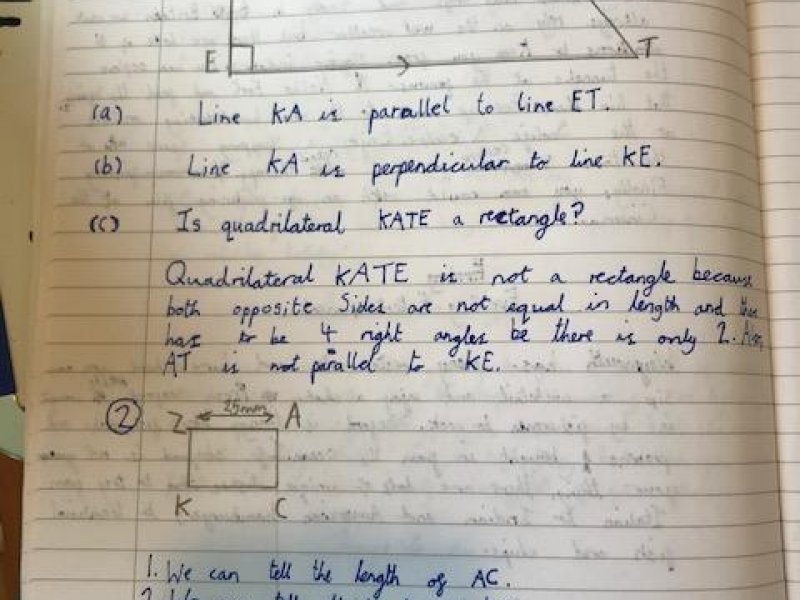 E
T
(a) Line KA is parallel to line ET.
(b) Line KA is perpendicular to line KE.
(c) Is quadrilateral KATE a rectangle?
Quadrilateral KATE is not a rectangle because
both opposite sides are not equal in length and
has to be 4 right angles be there is only 2. Also,
AT is not parallel to KE.
② Z 25mm A
K C
1. We can tell the length of AC.
2. We can tell